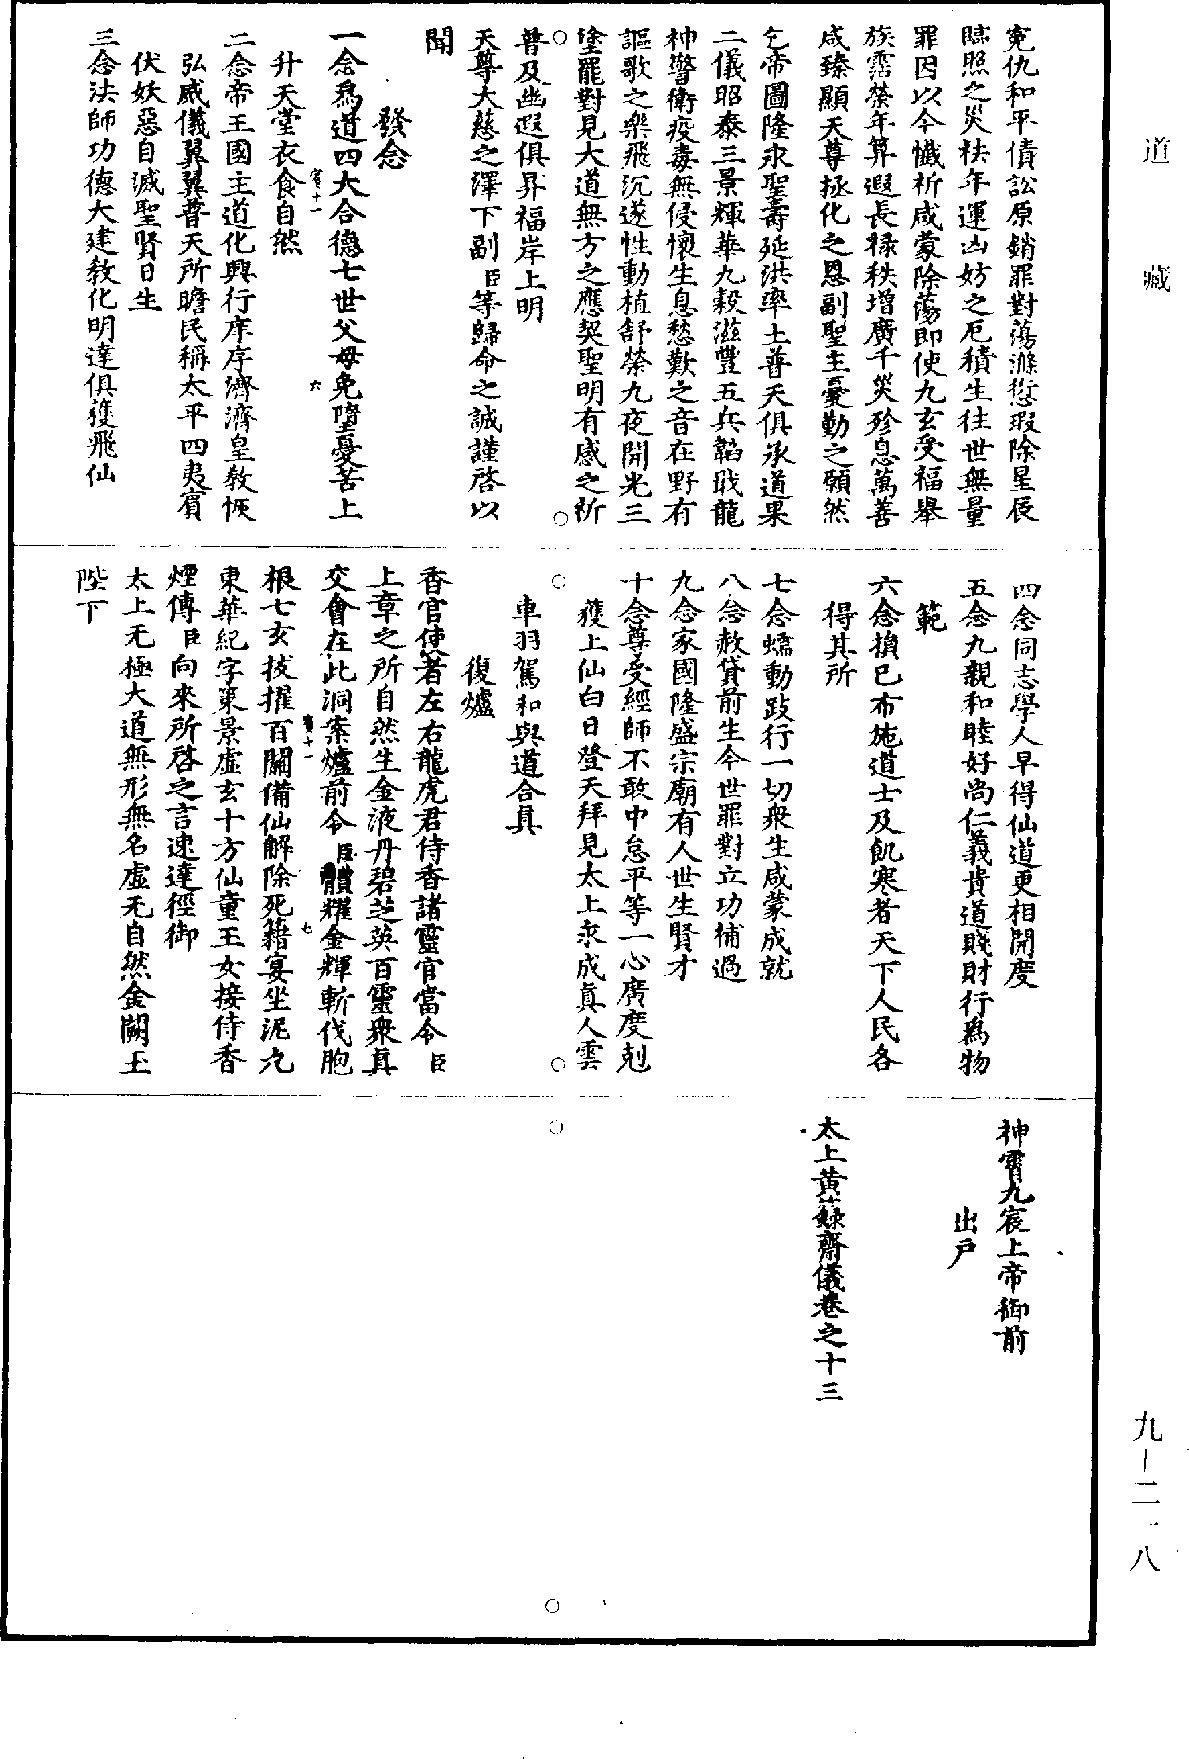 道藏
冤仇和平債訟原銷罪對蕩滌愆瑕除星辰
臨照之災祛年運凶妨之厄積生往世無量
罪因以今懺祈咸蒙除蕩即使九玄受福舉
族霑榮年算遐長祿秩增廣千災殄息萬善
咸臻顯天尊拯化之恩副聖主憂勤之願然
乞帝圖隆永聖壽延洪率土普天俱承道果
二儀昭泰三景輝華九穀滋豐五兵韜戢龍
神警衛疫毒無侵懷生息愁歎之音在野有
謳歌之樂飛沉遂性動植舒榮九夜開光三
塗罷對見大道無方之應契聖明有感之祈
普及幽遐俱昇福岸上明
天尊大慈之澤下副臣等歸命之誠謹啓以
聞
發念
一念為道四大合德七世父母免墮憂苦上
升天堂衣食自然
二念帝王國主道化興行庠序濟濟皇教恢
弘威儀翼翼普天所瞻民稱太平四夷賓
伏妖惡自滅聖賢日生
三念法師功德大建教化明達俱獲飛仙
六
四念同志學人早得仙道更相開度
五念九親和睦好尚仁義貴道賤財行為物
範
六念損己布施道士及飢寒者天下人民各
得其所
七念蠕動跂行一切衆生咸蒙成就
八念赦貸前生今世罪對立功補過
九念家國隆盛宗廟有人世生賢才
十念尊受經師不敢中怠平等一心廣度剋
獲上仙白日登天拜見太上永成真人雲
車羽駕和與道合真
復爐
香官使者左右龍虎君侍香諸靈官當令臣
上章之所自然生金液丹碧芝英百靈衆真
交會在此洞案爐前令臣體耀金輝斬伐胞
根七玄拔擢百關備仙解除死籍宴坐泥丸
東華紀字策景虛玄十方仙童玉女接侍香
煙傳臣向來所啓之言速達徑御
太上无極大道無形無名虛无自然金闕玉
陛下
七
神霄九宸上帝御前
出戶
太上黃籙齋儀卷之十三
九—二一八